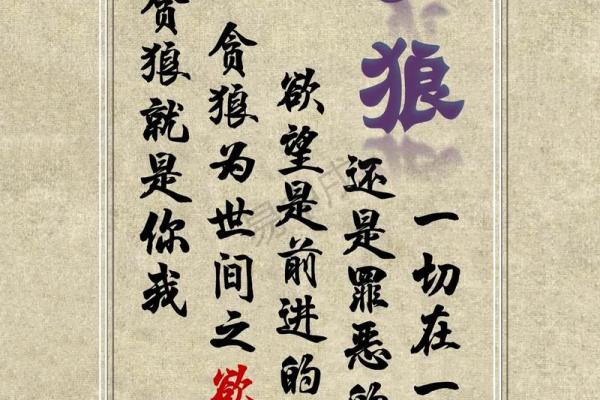 狼
一切在一
还是罪恶的
欲望是前进的
贪狼为世间之欲
贪狼就是你我